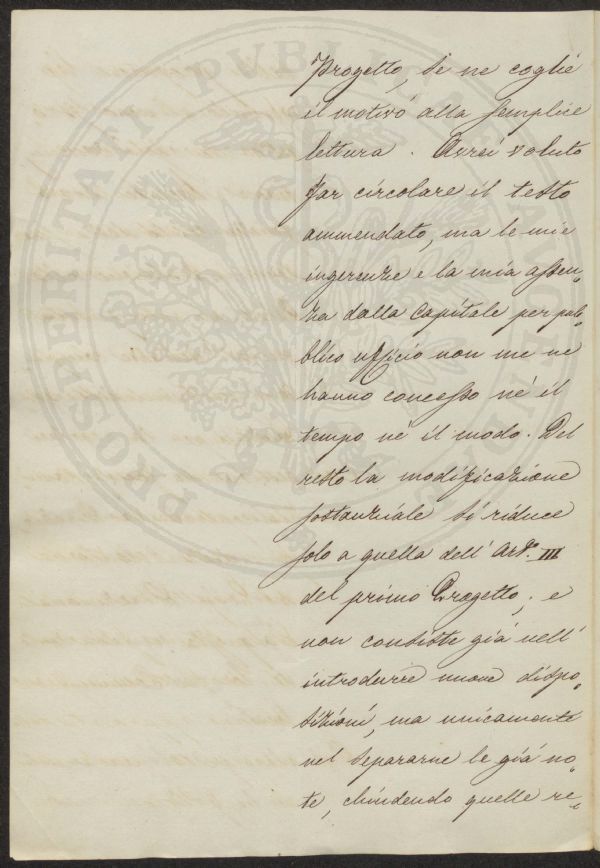 Progetto, se ne coglie
il motivo alla semplice
lettura. Avrei voluto
far circolare il testo
ammendato, ma le mie
ingerenze e la mia assen-
za dalla Capitale per pub-
blico ufficio non me ne
hanno concesso nè il
tempo nè il modo. Del
resto la modificazione
sostanziale si riduce
solo a quella dell' Art.º III
del primo Progetto; e
non consiste già nell'
introdurre nuove dispo-
sizioni, ma unicamente
nel separarne le già no-
te, chiudendo quelle re-
PROSPERITATI PVBLICAE